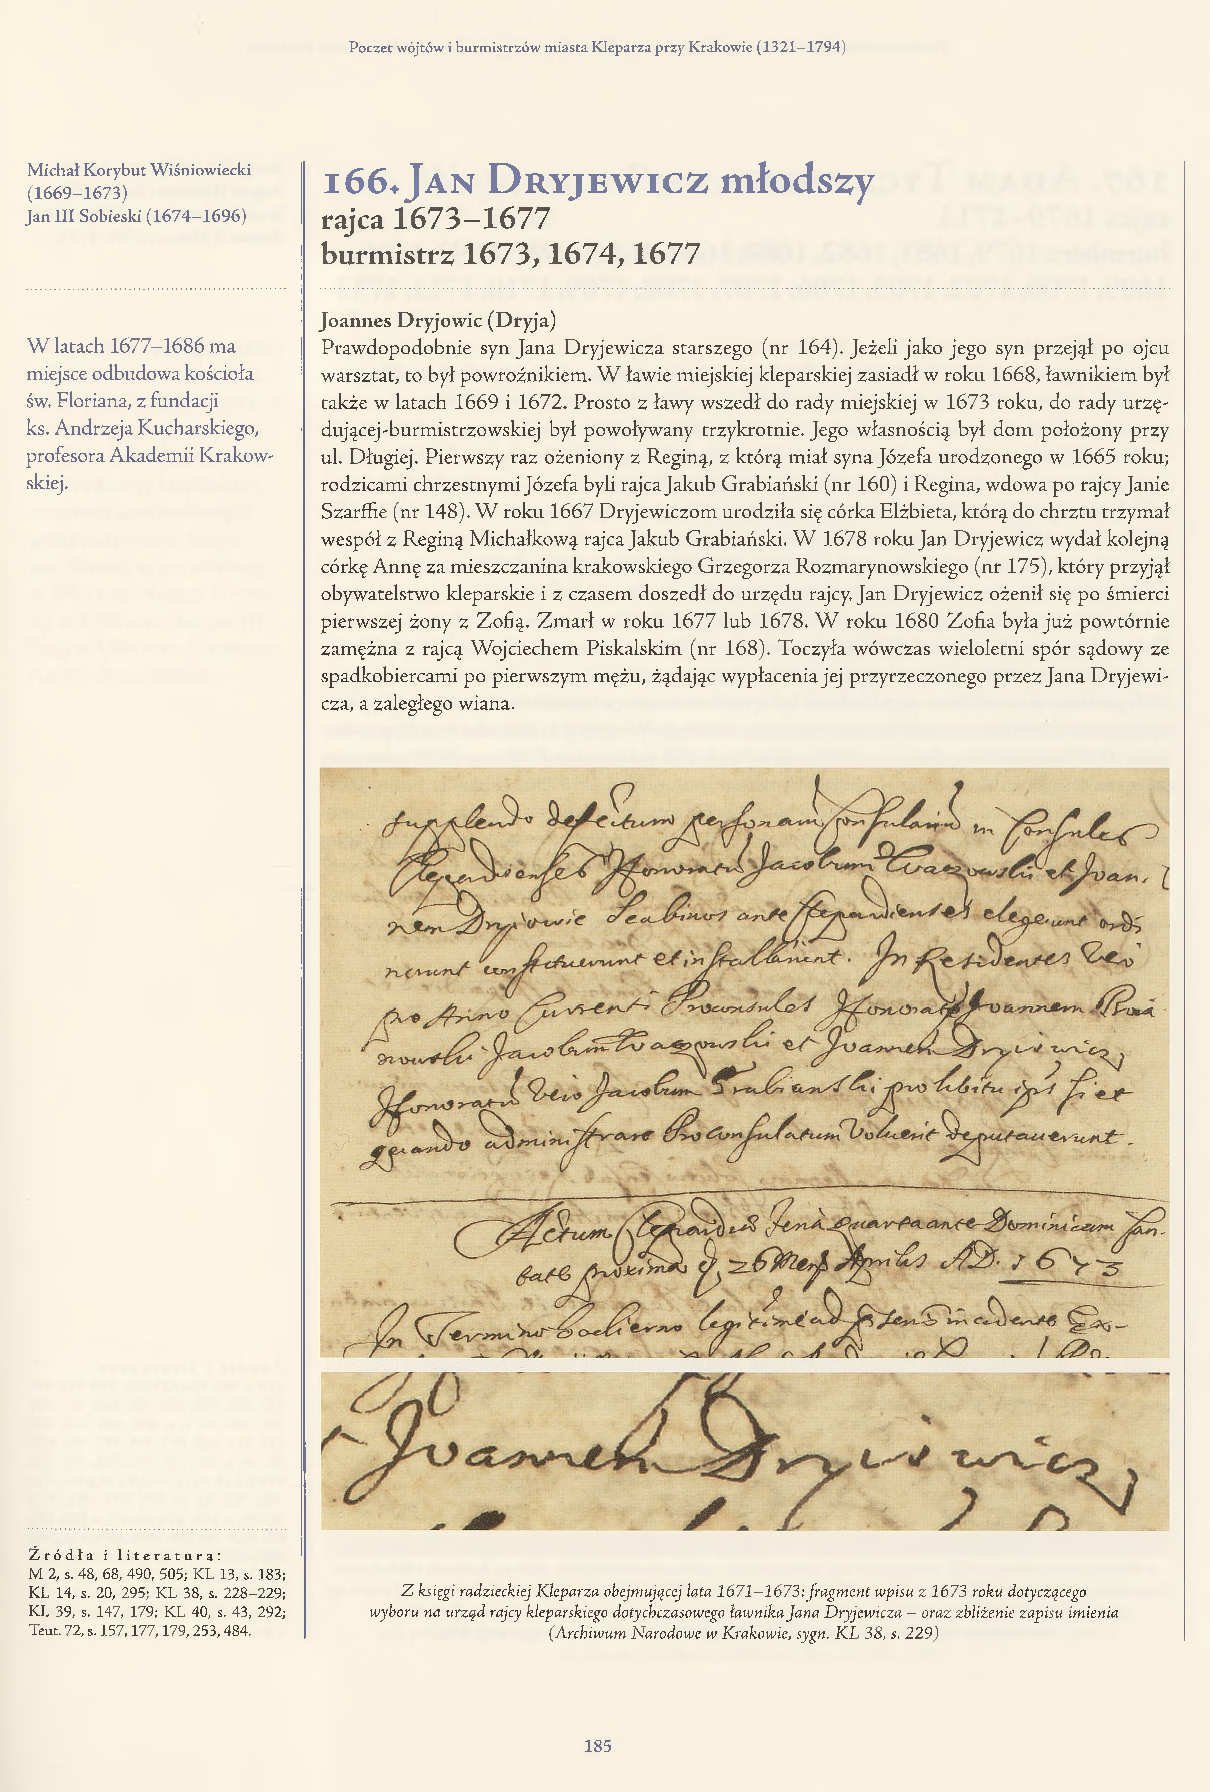 Poczet wójtów i burmistrzów miasta Kleparza przy Krakowie (1321–1794)
Michał Korybut Wiśniowiecki
(1669–1673)
Jan III Sobieski (1674–1696)
W latach 1677–1686 ma
miejsce odbudowa kościoła
św. Floriana, z fundacji
ks. Andrzeja Kucharskiego,
profesora Akademii Krakow-
skiej.
166. Jan Dryjewicz młodszy
rajca 1673–1677
burmistrz 1673, 1674, 1677
Joannes Dryjowic (Dryja)
Prawdopodobnie syn Jana Dryjewicza starszego (nr 164). Jeżeli jako jego syn przejął po ojcu
warsztat, to był powroźnikiem. W ławie miejskiej kleparskiej zasiadł w roku 1668, ławnikiem był
także w latach 1669 i 1672. Prosto z ławy wszedł do rady miejskiej w 1673 roku, do rady urzę-
dującej-burmistrzowskiej był powoływany trzykrotnie. Jego własnością był dom położony przy
ul. Długiej. Pierwszy raz ożeniony z Reginą, z którą miał syna Józefa urodzonego w 1665 roku;
rodzicami chrzestnymi Józefa byli rajca Jakub Grabiański (nr 160) i Regina, wdowa po rajcy Janie
Szarffie (nr 148). W roku 1667 Dryjewiczom urodziła się córka Elżbieta, którą do chrztu trzymał
wespół z Reginą Michałkową rajca Jakub Grabiański. W 1678 roku Jan Dryjewicz wydał kolejną
córkę Annę za mieszczanina krakowskiego Grzegorza Rozmarynowskiego (nr 175), który przyjął
obywatelstwo kleparskie i z czasem doszedł do urzędu rajcy. Jan Dryjewicz ożenił się po śmierci
pierwszej żony z Zofią. Zmarł w roku 1677 lub 1678. W roku 1680 Zofia była już powtórnie
zamężna z rajcą Wojciechem Piskalskim (nr 168). Toczyła wówczas wieloletni spór sądowy ze
spadkobiercami po pierwszym mężu, żądając wypłacenia jej przyrzeczonego przez Jana Dryjewi-
cza, a zaległego wiana.
supplendo defectum personarum Consularium in Consules
Clepardienses Honoratum Jacobum et Joan-
nem Dryiowic Scabinos ante Clepardienses elegerunt ordi
nerunt constituerunt et installarunt. In Residentes Vero
pro Anno Currenti Proconsules Honoratos Joannem
Jacobum et Joannem Dryiewicz,
Honoratum Vero Jacobum Grabianski pro libitu ipsius si et
quando administrare Proconsulatum Voluerit deputauerunt.
Actum Clepardiae Feria quarta ante Dominicam
proxima d. 26 Mens Aprilis AD. 1673
In Termino hodierno legitime ad incidente Ex-
Joannem Dryiewicz,
Z księgi radzieckiej Kleparza obejmującej lata 1671–1673: fragment wpisu z 1673 roku dotyczącego
wyboru na urząd rajcy kleparskiego dotychczasowego ławnika Jana Dryjewicza – oraz zbliżenie zapisu imienia
(Archiwum Narodowe w Krakowie, sygn. KL 38, s. 229)
Źródła i literatura:
M 2, s. 48, 68, 490, 505; KL 13, s. 183;
KL 14, s. 20, 295; KL 38, s. 228–229;
KL 39, s. 147, 179; KL 40, s. 43, 292;
Teut. 72, s. 157, 177, 179, 253, 484.
185